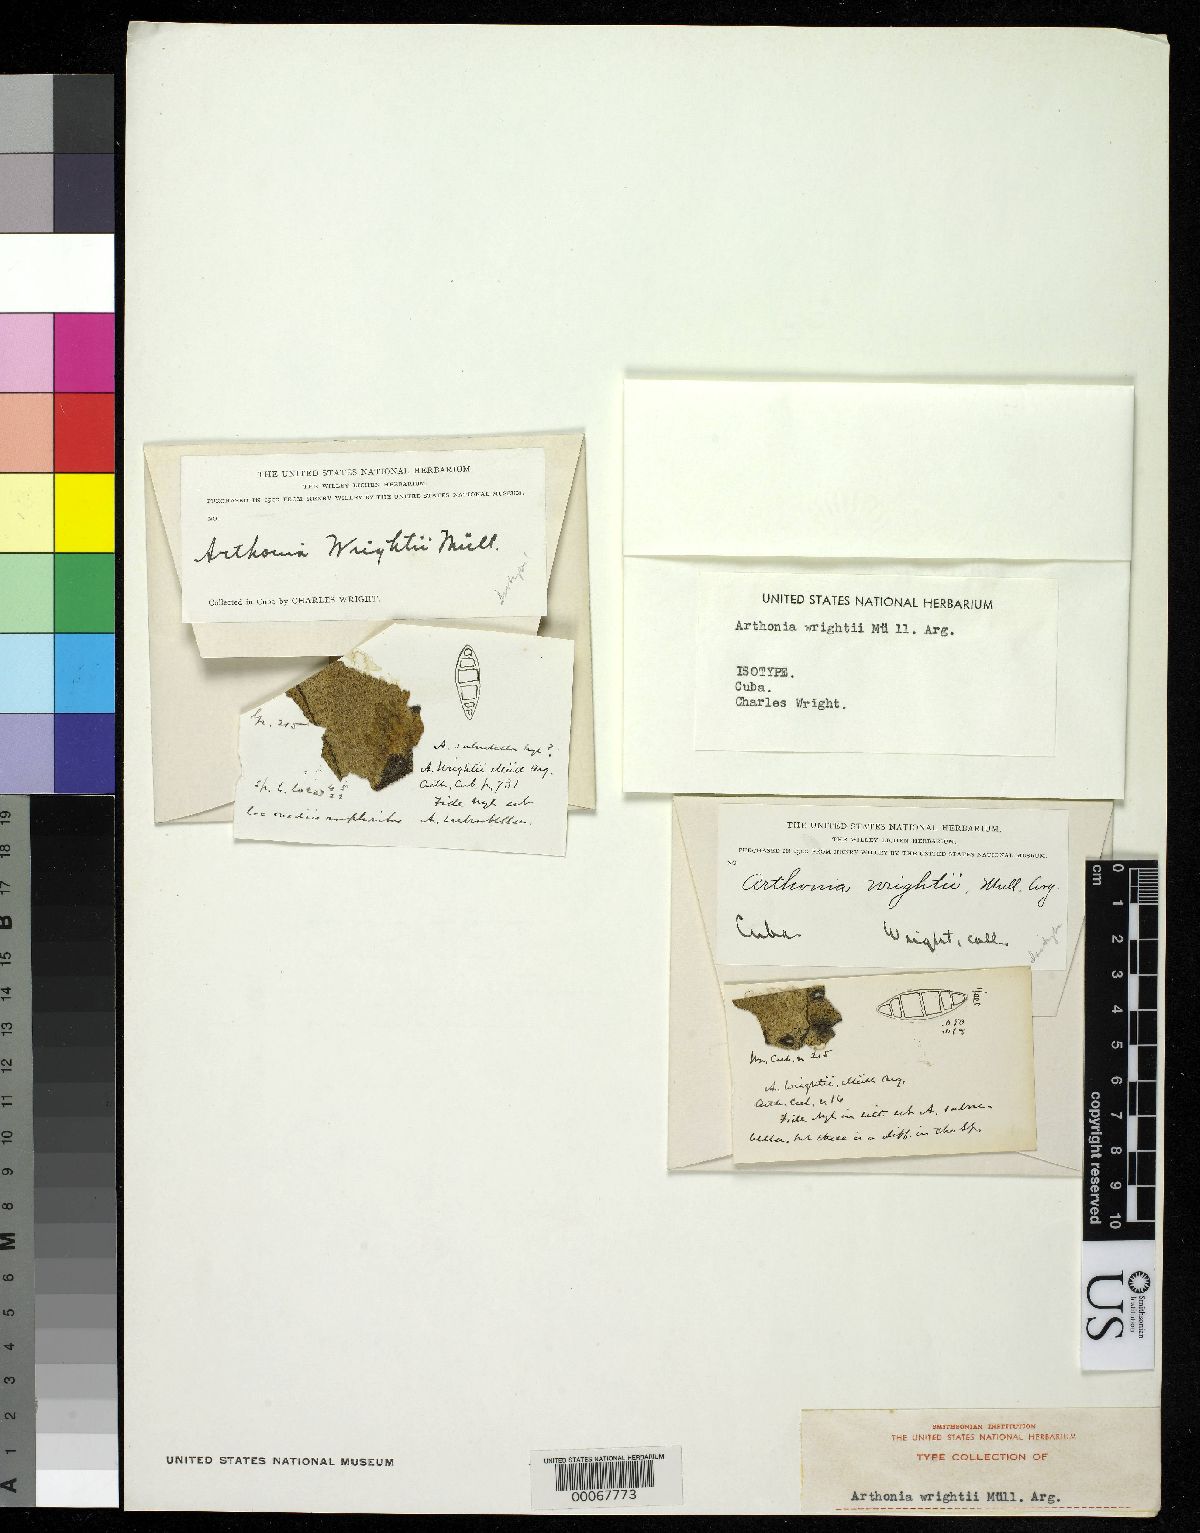 THE UNITED STATES NATIONAL HERBARIUM
THE WILLEY LICHEN HERBARIUM.
PURCHASED IN 1900 FROM HENRY WILLEY BY THE UNITED STATES NATIONAL MUSEUM.
NO.
Arthonia Wrightii Müll.
Collected in Cuba by CHARLES WRIGHT.
215
A. Wrightii Müll Arg.
Fide Nyl est
UNITED STATES NATIONAL HERBARIUM
Arthonia wrightii Mü ll. Arg.
ISOTYPE.
Cuba.
Charles Wright.
THE UNITED STATES NATIONAL HERBARIUM.
THE WILLEY LICHEN HERBARIUM.
PURCHASED IN 1900 FROM HENRY WILLEY BY THE UNITED STATES NATIONAL MUSEUM.
NO
Arthonia wrightii, Müll. Arg.
Cuba Wright, coll.
Wr. Cub. n 215
A. Wrightii, Müll Arg.
Arth. Cub. n 16
Fide Nyl in litt. est A. subne-
bella. but there is a diff. in the Sp.
cm 0 1 2 3 4 5 6 7 8 9 10
copyright reserved
US
Smithsonian
Institution
A 1 2 3 4 5 6 M 8 9 10 11 12 13 14 15 B 17 18 19
UNITED STATES NATIONAL MUSEUM
UNITED STATES NATIONAL HERBARIUM
00067773
SMITHSONIAN INSTITUTION
THE UNITED STATES NATIONAL HERBARIUM
TYPE COLLECTION OF
Arthonia wrightii Müll. Arg.